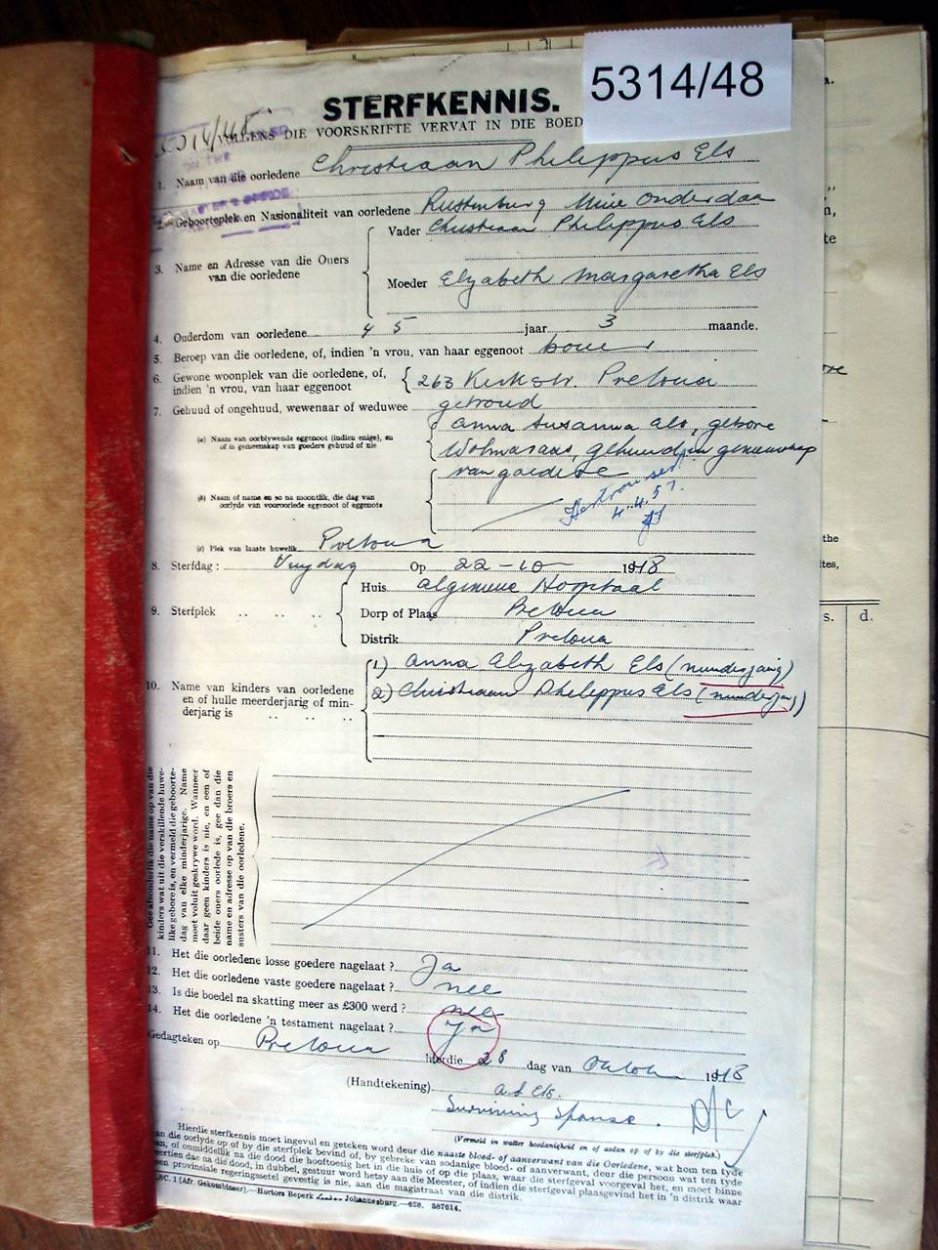 5314/48
STERFKENNIS.
VOLGENS DIE VOORSKRIFTE VERVAT IN DIE BOED
1. Naam van die oorledene Christiaan Philippus Els
2. Geboorteplek en Nasionaliteit van oorledene Rustenburg Unie Onderdaan
3. Name en Adresse van die Ouers van die oorledene
Vader Christiaan Philippus Els
Moeder Elizabeth Margaretha Els
4. Ouderdom van oorledene 45 jaar 3 maande.
5. Beroep van die oorledene, of, indien 'n vrou, van haar eggenoot boer
6. Gewone woonplek van die oorledene, of, indien 'n vrou, van haar eggenoot
263 Kerkstr. Pretoria
7. Gehuud of ongehuud, wewenaar of weduwee getroud
(a) Naam van oorblywende eggenoot (indien enige), en of in gemeenskap van goedere gehuud of nie
Anna Susanna Els, gebore
Wolmarans, gehuud in gemeenskap
van goedere
4.4.51.
(b) Naam of name en so na moontlik, die dag van oorlyde van vooroorlede eggenoot of eggenote
(c) Plek van laaste huwelik Pretoria
8. Sterfdag: Vrydag Op 22-10- 1948
9. Sterfplek
Huis Algemene Hospitaal
Dorp of Plaas Pretoria
Distrik Pretoria
10. Name van kinders van oorledene en of hulle meerderjarig of minderjarig is
1) Anna Elizabeth Els (minderjarig)
2) Christiaan Philippus Els (minderjarig)
kinders wat uit die verskillende huwelike gebore is, en vermeld die geboortedag van elke minderjarige. Name
moet voluit geskrywe word. Wanneer
daar geen kinders is nie, en een of
beide ouers oorlede is, gee dan die
name en adresse op van die broers en
susters van die oorledene.
11. Het die oorledene losse goedere nagelaat? Ja
12. Het die oorledene vaste goedere nagelaat? nee
13. Is die boedel na skatting meer as £300 werd? nee
14. Het die oorledene 'n testament nagelaat? Ja
Gedagteken op Pretoria hierdie 28 dag van Oktober 1948
(Handtekening) A.S. Els.
Surviving Spouse.
(Vermeld in watter hoedanigheid en of aldan op of by die sterfplek.)
Hierdie sterfkennis moet ingevul en geteken word deur die naaste bloed- of aanverwant van die Oorledene, wat hom ten tyde
van die oorlyde op of by die sterfplek bevind of, by gebreke van sodanige bloed- of aanverwant, deur die persoon wat ten tyde
van, of onmiddelik na die dood die hooftoesig het in die huis of op die plaas, waar die sterfgeval voorgeval het, en moet binne
veertien dae na die dood, in dubbel, gestuur word hetsy aan die Meester, of indien die sterfgeval plaasgevind het in 'n distrik waar
geen provinsiale regeringsetel gevestig is nie, aan die magistraat van die distrik.
Hortors Beperk Johannesburg.—628. 287614.
s. d.